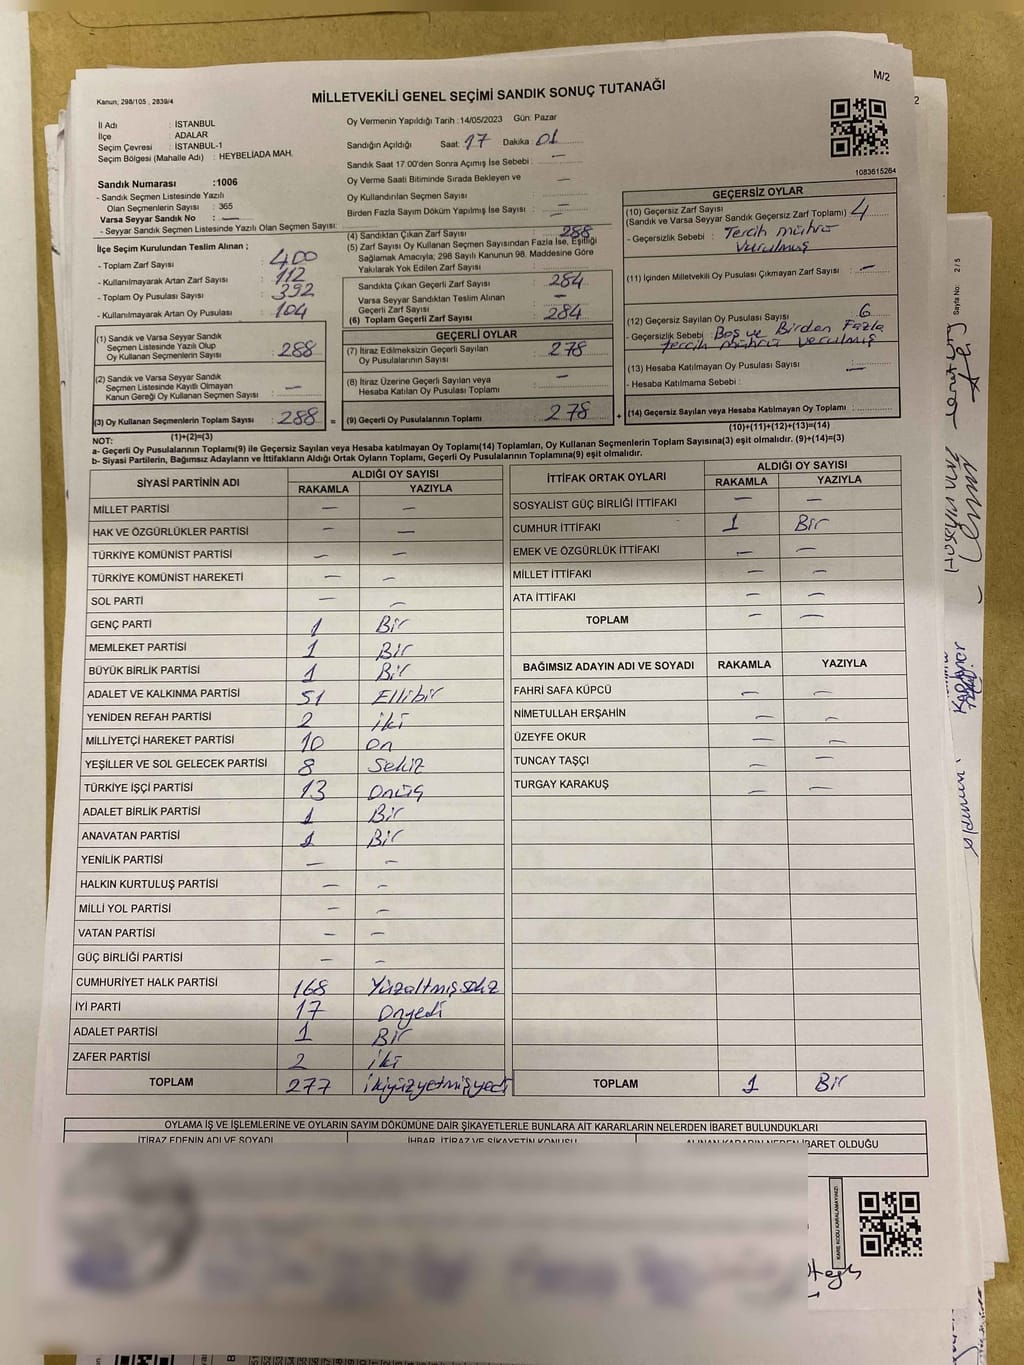 M/2
Kanun; 298/105 , 2839/4
MİLLETVEKİLİ GENEL SEÇİMİ SANDIK SONUÇ TUTANAĞI
İl Adı : İSTANBUL
İlçe : ADALAR
Seçim Çevresi : İSTANBUL-1
Seçim Bölgesi (Mahalle Adı) : HEYBELİADA MAH.
Sandık Numarası :1006
- Sandık Seçmen Listesinde Yazılı
Olan Seçmenlerin Sayısı : 365
Varsa Seyyar Sandık No : —
- Seyyar Sandık Seçmen Listesinde Yazılı Olan Seçmen Sayısı:
İlçe Seçim Kurulundan Teslim Alınan ;
- Toplam Zarf Sayısı : 400
- Kullanılmayarak Artan Zarf Sayısı : 112
- Toplam Oy Pusulası Sayısı : 392
- Kullanılmayarak Artan Oy Pusulası : 104
(1) Sandık ve Varsa Seyyar Sandık
Seçmen Listesinde Yazılı Olup
Oy Kullanan Seçmenlerin Sayısı : 288
(2) Sandık ve Varsa Seyyar Sandık
Seçmen Listesinde Kayıtlı Olmayan
Kanun Gereği Oy Kullanan Seçmen Sayısı : —
(3) Oy Kullanan Seçmenlerin Toplam Sayısı : 288 =
(1)+(2)=(3)
Oy Vermenin Yapıldığı Tarih :14/05/2023 Gün: Pazar
Sandığın Açıldığı Saat: 17 Dakika 01
Sandık Saat 17:00'den Sonra Açımış İse Sebebi : —
Oy Verme Saati Bitiminde Sırada Bekleyen ve —
Oy Kullandırılan Seçmen Sayısı :
Birden Fazla Sayım Döküm Yapılmış İse Sayısı : —
(4) Sandıktan Çıkan Zarf Sayısı : 288
(5) Zarf Sayısı Oy Kullanan Seçmen Sayısından Fazla İse, Eşitliği
Sağlamak Amacıyla; 298 Sayılı Kanunun 98. Maddesine Göre
Yakılarak Yok Edilen Zarf Sayısı :
Sandıkta Çıkan Geçerli Zarf Sayısı : 284
Varsa Seyyar Sandıktan Teslim Alınan
Geçerli Zarf Sayısı : —
(6) Toplam Geçerli Zarf Sayısı : 284
GEÇERLİ OYLAR
(7) İtiraz Edilmeksizin Geçerli Sayılan
Oy Pusulalarının Sayısı : 278
(8) İtiraz Üzerine Geçerli Sayılan veya
Hesaba Katılan Oy Pusulası Toplamı : —
(9) Geçerli Oy Pusulalarının Toplamı : 278 +
1083615264
GEÇERSİZ OYLAR
(10) Geçersiz Zarf Sayısı : 4
(Sandık ve Varsa Seyyar Sandık Geçersiz Zarf Toplamı)
- Geçersizlik Sebebi : Tercih mührü
vurulmuş
(11) İçinden Milletvekili Oy Pusulası Çıkmayan Zarf Sayısı : —
(12) Geçersiz Sayılan Oy Pusulası Sayısı : 6
- Geçersizlik Sebebi : Boş ve Birden Fazla
tercih mührü vurulmuş
(13) Hesaba Katılmayan Oy Pusulası Sayısı : —
- Hesaba Katılmama Sebebi :
(14) Geçersiz Sayılan veya Hesaba Katılmayan Oy Toplamı :
(10)+(11)+(12)+(13)=(14)
NOT:
a- Geçerli Oy Pusulalarının Toplamı(9) ile Geçersiz Sayılan veya Hesaba katılmayan Oy Toplamı(14) Toplamları, Oy Kullanan Seçmenlerin Toplam Sayısına(3) eşit olmalıdır. (9)+(14)=(3)
b- Siyasi Partilerin, Bağımsız Adayların ve İttifakların Aldığı Ortak Oyların Toplamı, Geçerli Oy Pusulalarının Toplamına(9) eşit olmalıdır.
SİYASİ PARTİNİN ADI ALDIĞI OY SAYISI
RAKAMLA YAZIYLA
MİLLET PARTİSİ — —
HAK VE ÖZGÜRLÜKLER PARTİSİ — —
TÜRKİYE KOMÜNİST PARTİSİ — —
TÜRKİYE KOMÜNİST HAREKETİ — —
SOL PARTİ — —
GENÇ PARTİ 1 Bir
MEMLEKET PARTİSİ 1 Bir
BÜYÜK BİRLİK PARTİSİ 1 Bir
ADALET VE KALKINMA PARTİSİ 51 Ellibir
YENİDEN REFAH PARTİSİ 2 iki
MİLLİYETÇİ HAREKET PARTİSİ 10 on
YEŞİLLER VE SOL GELECEK PARTİSİ 8 Sekiz
TÜRKİYE İŞÇİ PARTİSİ 13 onüç
ADALET BİRLİK PARTİSİ 1 Bir
ANAVATAN PARTİSİ 1 Bir
YENİLİK PARTİSİ — —
HALKIN KURTULUŞ PARTİSİ — —
MİLLİ YOL PARTİSİ — —
VATAN PARTİSİ — —
GÜÇ BİRLİĞİ PARTİSİ — —
CUMHURİYET HALK PARTİSİ 168 Yüzaltmışsekiz
İYİ PARTİ 17 Onyedi
ADALET PARTİSİ 1 Bir
ZAFER PARTİSİ 2 iki
TOPLAM 277 ikiyüzyetmişyedi
İTTİFAK ORTAK OYLARI ALDIĞI OY SAYISI
RAKAMLA YAZIYLA
SOSYALİST GÜÇ BİRLİĞİ İTTİFAKI — —
CUMHUR İTTİFAKI 1 Bir
EMEK VE ÖZGÜRLÜK İTTİFAKI — —
MİLLET İTTİFAKI — —
ATA İTTİFAKI — —
TOPLAM — —
BAĞIMSIZ ADAYIN ADI VE SOYADI RAKAMLA YAZIYLA
FAHRİ SAFA KÜPCÜ — —
NİMETULLAH ERŞAHİN — —
ÜZEYFE OKUR — —
TUNCAY TAŞÇI — —
TURGAY KARAKUŞ — —
TOPLAM 1 Bir
OYLAMA İŞ VE İŞLEMLERİNE VE OYLARIN SAYIM DÖKÜMÜNE DAİR ŞİKAYETLERLE BUNLARA AİT KARARLARIN NELERDEN İBARET BULUNDUKLARI
İTİRAZ EDENİN ADI VE SOYADI İHBAR, İTİRAZ VE ŞİKAYETİN KONUSU ALINAN KARARIN NEDEN İBARET OLDUĞU
KARE KODU KARALAMAYINIZ!
Sayfa No: 2 / 5